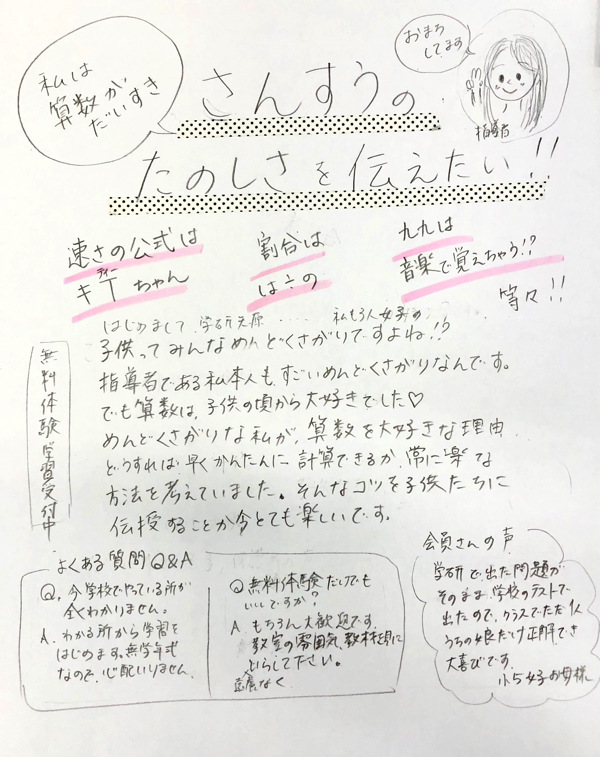 私は
算数が
だいすき
さんすうの
たのしさを伝えたい!!
おまち
してます
指導者
速さの公式は
キティーちゃん
割合は
は÷の
九九は
音楽で覚えちゃう!?
等々!!
はじめまして、学研
私も3人女子の
子供ってみんなめんどくさがりですよね!?
指導者である私本人も、すごいめんどくさがりなんです。
でも算数は、子供の頃から大好きでした♡
めんどくさがりな私が、算数を大好きな理由
どうすれば早くかんたんに計算できるか、常に楽な
方法を考えていました。そんなコツを子供たちに
伝授することが今とても楽しいです。
無料体験学習受付中
よくある質問Q&A
Q、今学校でやっている所が
全くわかりません。
A、わかる所から学習を
はじめます。無学年式
なので、心配いりません。
Q 無料体験だけでも
いいですか?
A もちろん大歓迎です。
教室の雰囲気、教材を見に
いらして下さい。
遠慮なく
会員さんの声
学研で出た問題が
そのまま、学校のテストで
出たので、クラスでただ1人
うちの娘だけ正解でき
大喜びです。
小5女子お母様